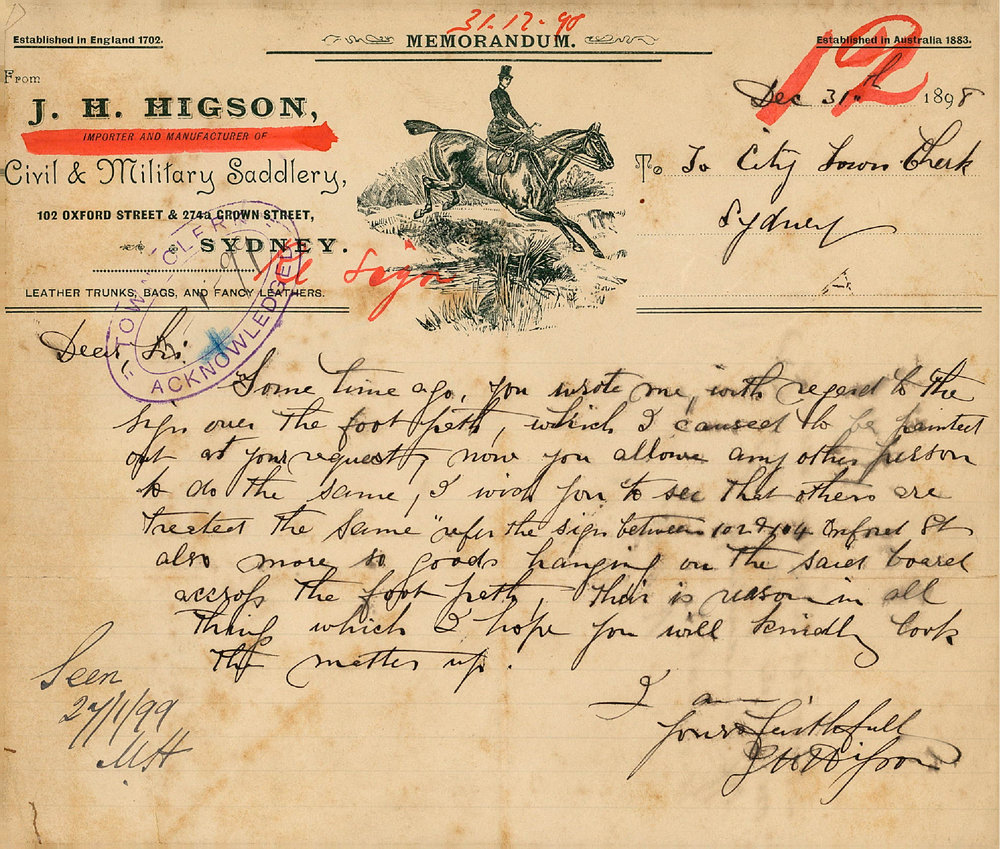 31.12.98
Established in England 1702.
MEMORANDUM.
Established in Australia 1883.
From
Dec 31th 1898
J. H. HIGSON,
IMPORTER AND MANUFACTURER OF
Civil & Military Saddlery,
To To City Town Clerk
102 OXFORD STREET & 274a CROWN STREET,
Sydney
SYDNEY.
Re Sign
LEATHER TRUNKS, BAGS, AND FANCY LEATHERS.
TOWN CLERK
ACKNOWLEDGED
Dear Sir
Some time ago, you wrote me, with regard to the
sign over the foot path, which I caused to be painted
out at your request, now you allowe any other person
to do the same, I wish you to see that others are
treated the same "refer the sign between 102 & 104 Oxford St
also more so goods hanging on the said board
accross the foot path, their is reason in all
things which I hope you will kindly look
the matter up.
I am
yours faithfull
J H Higson
Seen
27/1/99